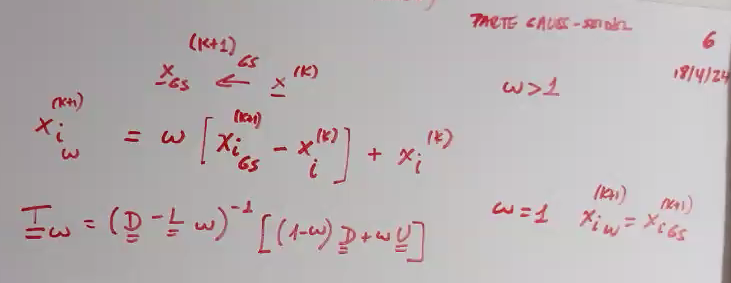 PARTE GAUSS-SEIDEL
6
18/4/24
x_GS^(K+1) ←^GS x^(K)
ω>1
x_i_ω^(K+1) = ω [x_i_GS^(K+1) - x_i^(K)] + x_i^(K)
T_ω = (D - L ω)^-1 [(1-ω) D + ω U]
ω=1 x_iω^(K+1) = x_iGS^(K+1)